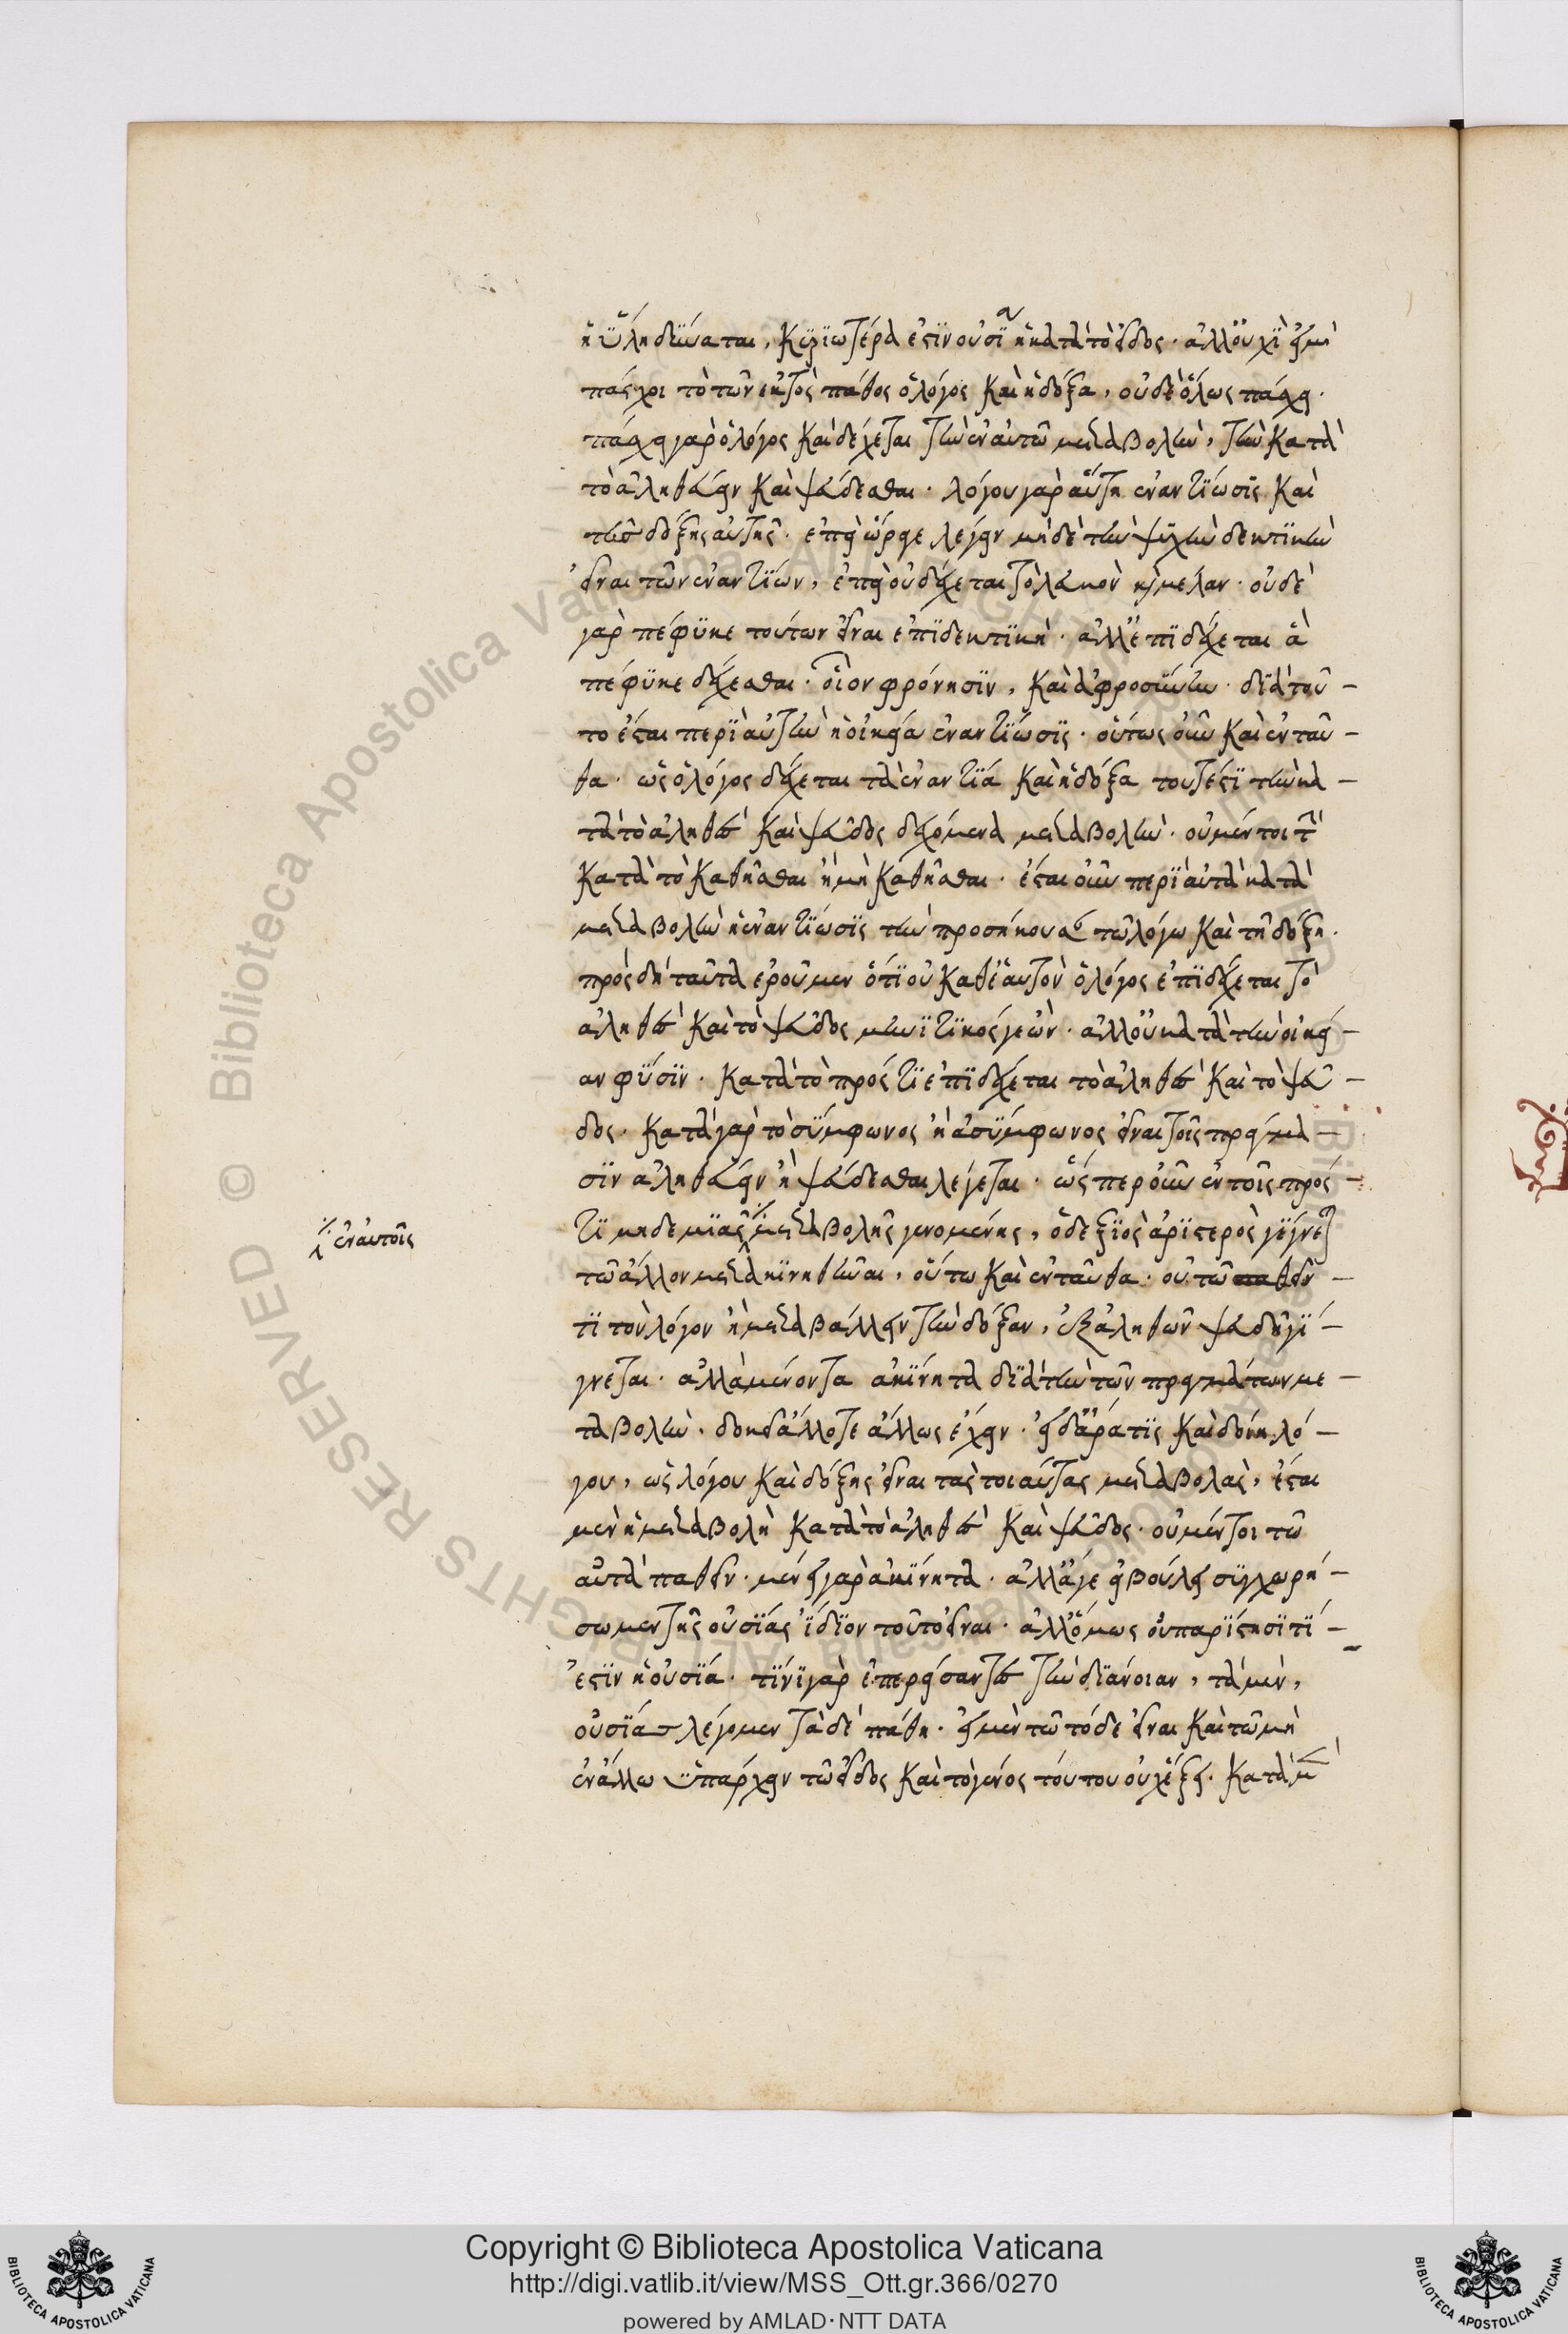 ἡ ὕλη δύναται, κυριωτέρα ἐστὶν οὐσία ἡ κατὰ τὸ εἶδος. ἀλλ' οὐχὶ εἰ μὴ
πάσχοι τὸ τῶν ἐκτὸς πάθος ὁ λόγος καὶ ἡ δόξα, οὐδὲ ὅλως πάσχει.
πάσχει γὰρ ὁ λόγος καὶ δέχεται τὴν ἐν αὐτῶ μεταβολὴν, τὴν κατὰ
τὸ ἀληθεύειν καὶ ψεύδεσθαι. λόγου γὰρ αὕτη ἐναντίωσις καὶ
τῆς δόξης αὐτῆς. ἐπεὶ ὥρα γε λέγειν μηδὲ τὴν ψυχὴν δεκτικὴν
εἶναι τῶν ἐναντίων, ἐπεὶ οὐ δέχεται τὸ λευκὸν καὶ μέλαν. οὐδὲ
γὰρ πέφυκε τούτων εἶναι ἐπιδεκτικὴ. ἀλλ' ἐπιδέχεται ἃ
πέφυκε δέχεσθαι. οἷον φρόνησιν, καὶ ἀφροσύνην. διὰ τοῦ –
το ἔσται περὶ αὐτὴν ἡ οἰκεία ἐναντίωσις. οὕτως οὖν καὶ ἐνταῦ –
θα. ὡς ὁ λόγος δέχεται τὰ ἐναντία καὶ ἡ δόξα τουτέστι τὴν κα –
τὰ τὸ ἀληθὲς καὶ ψεῦδος δεχόμενα μεταβολὴν. οὐ μέντοι τὴν
κατὰ τὸ καθῆσθαι ἢ μὴ καθῆσθαι. ἔσται οὖν περὶ αὐτὰ κατὰ
μεταβολὴν ἡ ἐναντίωσις τὴν προσήκουσαν τῶ λόγω καὶ τῆ δόξη.
πρὸς δὴ ταῦτα ἐροῦμεν ὅτι οὐ καθ' ἑαυτὸν ὁ λόγος ἐπιδέχεται τὸ
ἀληθὲς καὶ τὸ ψεῦδος μηνιτικός γε ὢν. ἀλλ' οὐ κατὰ τὴν οἰκεί –
αν φύσιν. κατὰ τὸ πρός τι ἐπιδέχεται τὸ ἀληθὲς καὶ τὸ ψεῦ –
δος. κατὰ γὰρ τὸ σύμφωνος ἢ ἀσύμφωνος εἶναι τοῖς πράγμα –
σιν ἀληθεύειν ἢ ψεύδεσθαι λέγεται. ὥσπερ οὖν ἐν τοῖς πρός –
τι μηδεμιᾶς μεταβολῆς γενομένης, ὁ δεξιὸς ἀριστερὸς γίγνεται
ἐν αὐτοῖς
τῶ ἄλλον μετακινηθῆναι, οὕτω καὶ ἐνταῦθα. οὐ τῶ παθεῖν –
τι τὸν λόγον ἢ μεταβάλλειν τὴν δόξαν, ἐξ ἀληθῶν ψευδῆ γί –
γνεται. ἀλλὰ μένοντα ἀκίνητα διὰ τὴν τῶν πραγμάτων με –
ταβολὴν, δοκεῖ ἄλλοτε ἄλλως ἔχειν. εἰ δ' ἄρα τις καὶ δοίη λό –
γου, ὡς λόγου καὶ δόξης εἶναι τὰς τοιαύτας μεταβολὰς, ἔσται
μὲν ἡ μεταβολὴ κατὰ τὸ ἀληθὲς καὶ ψεῦδος. οὐ μέντοι τῶ
αὐτὰ παθεῖν. μένει γὰρ ἀκίνητα. ἀλλά γε εἰ βούλει συγχωρή –
σωμεν τῆς οὐσίας ἴδιον τοῦτο εἶναι. ἀλλ' ὅμως οὐ παρίστησι τί –
ἐστιν ἡ οὐσία. τίνι γὰρ ἐπερείσαντες τὴν διάνοιαν, τὰ μὲν,
οὐσίας λέγομεν τὰ δὲ πάθη. εἰ μὲν τῶ τόδε εἶναι καὶ τῶ μὴ
ἐν ἄλλω ὑπάρχειν τῶ εἶδος καὶ τὸ γένος τούτου οὐχ ἕξει. κατὰ μὲν